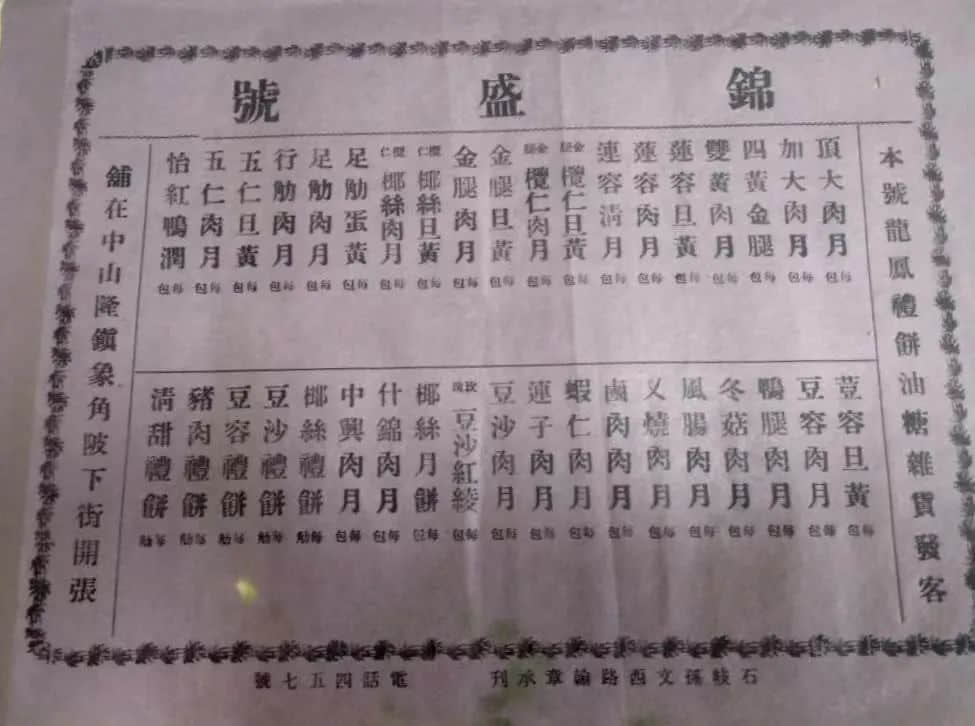 錦盛號
本號龍鳳禮餅油糖雜貨發客
頂大肉月每包
加大肉月每包
四黃金腿每包
雙黃肉月每包
蓮容旦黃每包
蓮容肉月每包
蓮容清月每包
金腿欖仁旦黃每包
金腿欖仁肉月每包
金腿旦黃每包
金腿肉月每包
欖仁椰絲旦黃每包
欖仁椰絲肉月每包
足觔蛋黃每包
足觔肉月每包
行觔肉月每包
五仁旦黃每包
五仁肉月每包
怡紅鴨潤每包
荳容旦黃每包
豆容肉月每包
鴨腿肉月每包
冬菇肉月每包
風腸肉月每包
乂燒肉月每包
鹵肉肉月每包
蝦仁肉月每包
蓮子肉月每包
豆沙肉月每包
玫瑰豆沙紅綾每包
椰絲月餅每包
什錦肉月每包
中興肉月每包
椰絲禮餅每觔
豆沙禮餅每觔
豆容禮餅每觔
豬肉禮餅每觔
清甜禮餅每觔
舖在中山隆鎭象角陂下街開張
石岐孫文西路諭章承刊
電話四五七號